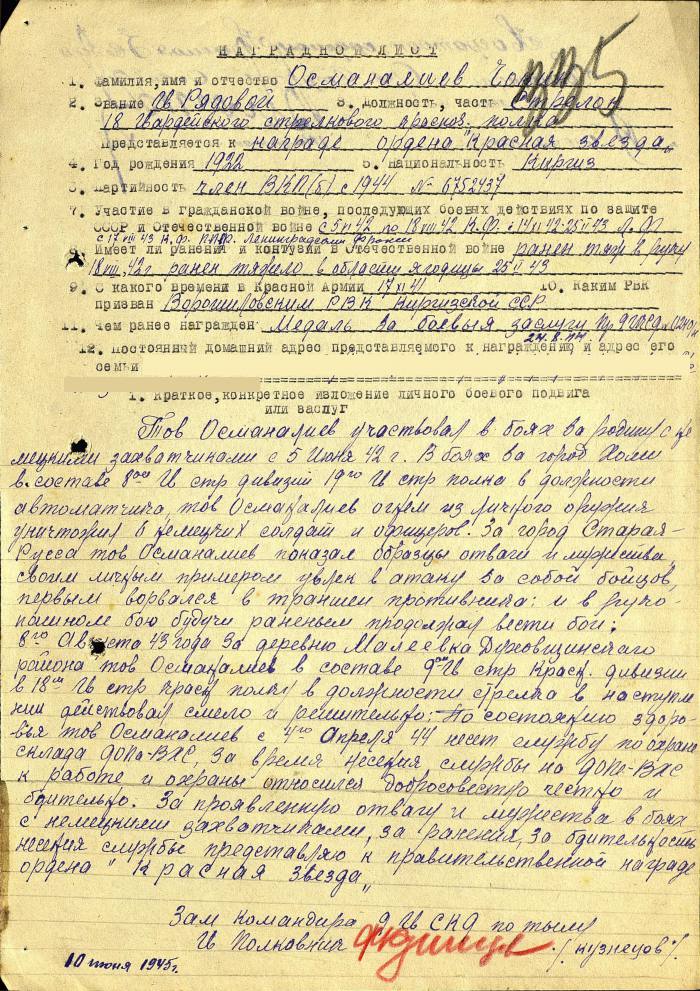 НАГРАДНОЙ ЛИСТ
1. Фамилия, имя и отчество Османалиев
2. Звание Гв Рядовой 3. Должность, часть Стрелок
18 Гвардейского стрелкового краснозн. полка
Представляется к награде ордена "Красная звезда"
4. Год рождения 1922 5. Национальность Киргиз
6. Партийность член ВКП(б) с 1944 № 6752437
7. Участие в гражданской войне, последующих боевых действиях по защите
СССР и Отечественной войне с 5 VI 42 по 18 VIII 42 К.Ф.
с 17 VIII 43 К.Ф. Ленинградский Фронт
8. Имеет ли ранения и контузии в Отечественной войне ранен тяж в руку
18 VIII. 42 г. ранен тяжело в области ягодицы 25 II 43
9. С какого времени в Красной Армии 17 XI 41 10. Каким РВК
призван Ворошиловским РВК Киргизской ССР
11. Чем ранее награжден Медаль За боевыя заслуги
12. Постоянный домашний адрес представляемого к награждению и адрес его
семьи
1. Краткое, конкретное изложение личного боевого подвига
или заслуг
Тов Османалиев участвовал в боях за родину с не
мецкими захватчиками с 5 Июня 42 г. В боях за город Холм
в составе 8ой Гв стр дивизии 19го Гв стр полка в должности
автоматчика, тов Османалиев огнем из личного оружия
уничтожил 6 немецких солдат и офицеров. За город Старая-
Русса тов Османалиев показал образцы отваги и мужества
своим личным примером увлек в атаку за собой бойцов,
первым ворвался в траншеи противника; и в руко-
пашном бою будучи раненым продолжал вести бой;
8го Августа 43 года За деревню Малеевка Духовщинского
района тов Османалиев в составе 9ой Гв стр Краск. дивизии
в 18ом Гв стр краск полку в должности стрелка в наступле
нии действовал смело и решительно; По состоянию здоро-
вья тов Османалиев с 4го Апреля 44 несет службу по охране
склада ДОПа-ВХС, За время несения службы на ДОПе-ВХС
к работе и охраны относился добросовестно честно и
бдительно. За проявленную отвагу и мужества в боях
с немецкими захватчиками, за ранения, за бдительность
несения службы представляю к правительственной награде
ордена "Красная Звезда"
Зам Командира 9 Гв СКД по тылу
Гв Полковник /Кузнецов/.
10 июня 1945г.